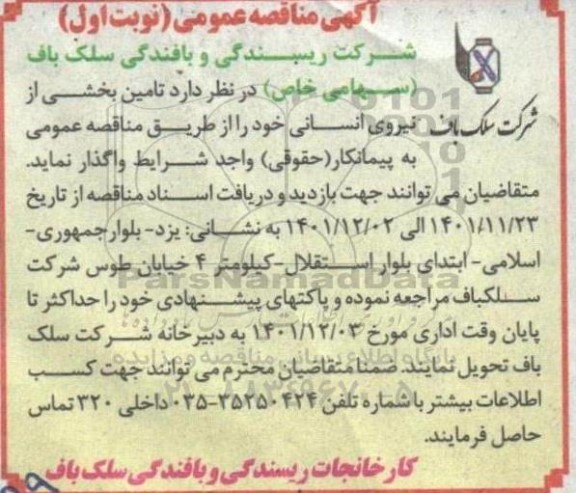 آگهی مناقصه عمومی (نوبت اول)
شرکت ریسندگی و بافندگی سلک باف
(سهامی خاص) در نظر دارد تامین بخشی از
شرکت سلک باف
نیروی انسانی خود را از طریق مناقصه عمومی
به پیمانکار(حقوقی) واجد شرایط واگذار نماید.
متقاضیان می توانند جهت بازدید و دریافت اسناد مناقصه از تاریخ
۱۴۰۱/۱۱/۲۳ الی ۱۴۰۱/۱۲/۰۲ به نشانی: یزد- بلوار جمهوری-
اسلامی- ابتدای بلوار استقلال-کیلومتر ۴ خیابان طوس شرکت
سلکباف مراجعه نموده و پاکتهای پیشنهادی خود را حداکثر تا
پایان وقت اداری مورخ ۱۴۰۱/۱۲/۰۳ به دبیرخانه شرکت سلک
باف تحویل نمایند. ضمنا متقاضیان محترم می توانند جهت کسب
اطلاعات بیشتر با شماره تلفن ۳۵۲۵۰۴۲۴-۰۳۵ داخلی ۳۲۰ تماس
حاصل فرمایند.
کارخانجات ریسندگی و بافندگی سلک باف
ParsNamadData
پایگاه اطلاع رسانی مناقصه و مزایده